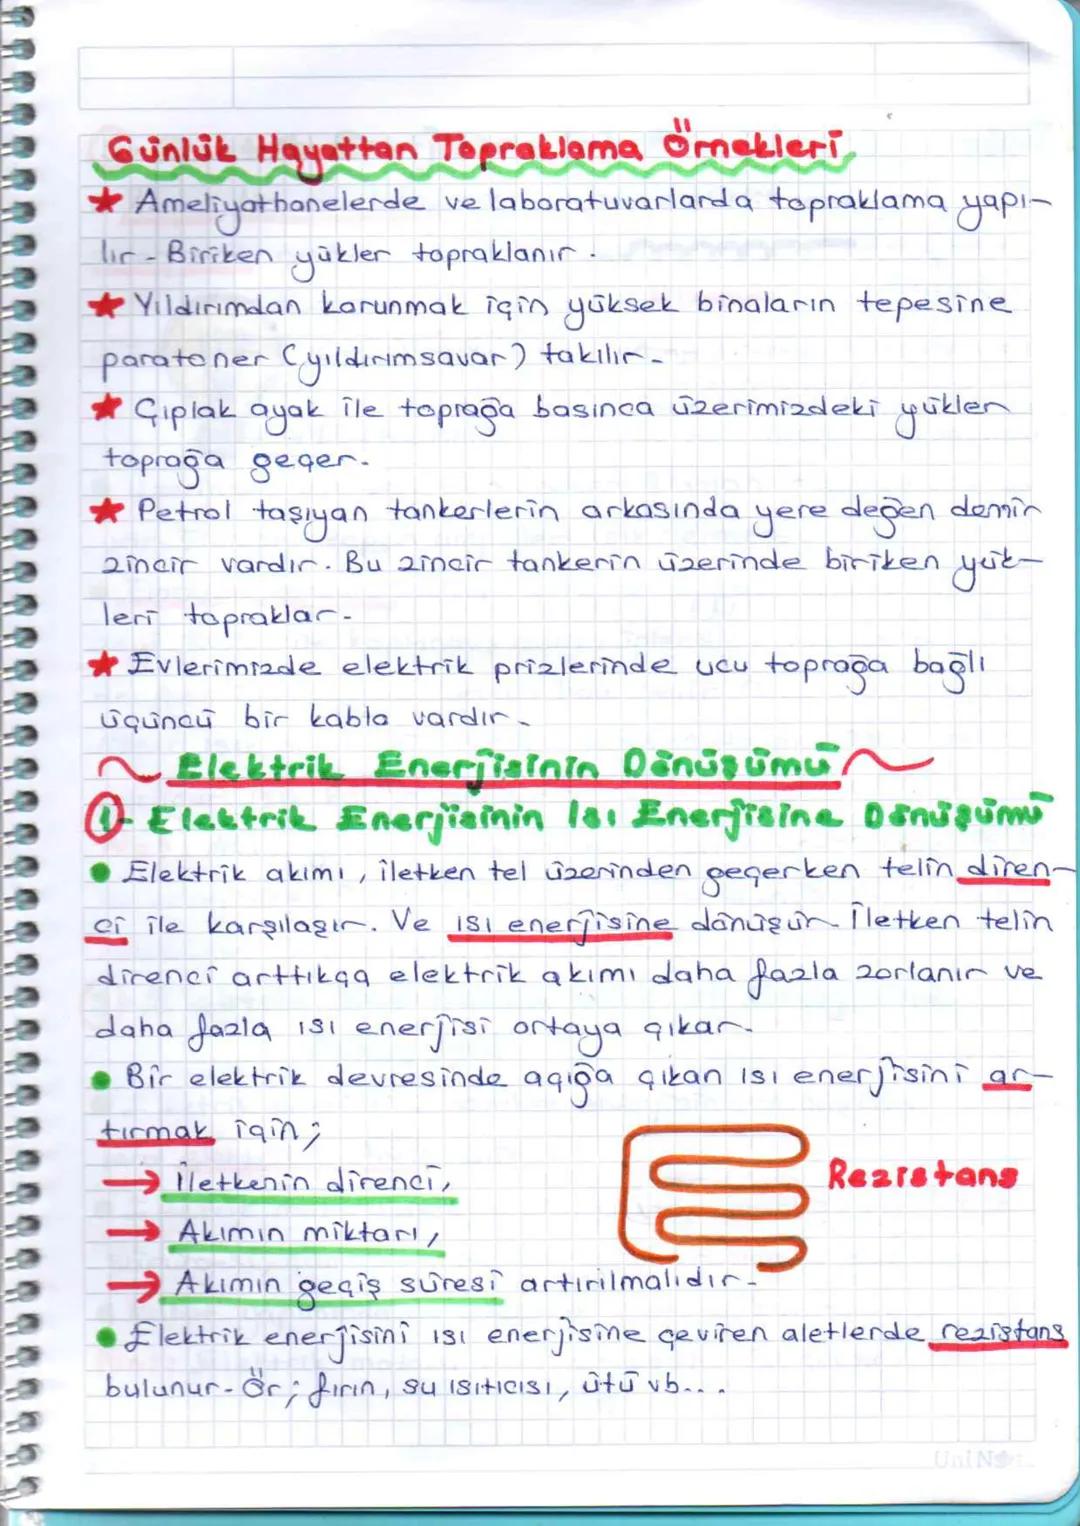 Günlük Hayattan Topraklama Örnekleri
★ Ameliyathanelerde ve laboratuvarlarda topraklama yapı-
lır. Biriken yükler topraklanır.
★ Yıldırımdan korunmak için yüksek binaların tepesine
paratoner (yıldırımsavar) takılır.
★ Çıplak ayak ile toprağa basınca üzerimizdeki yükler
toprağa geçer.
★ Petrol taşıyan tankerlerin arkasında yere değen demir
zincir vardır. Bu zincir tankerin üzerinde biriken yük-
leri topraklar.
★ Evlerimizde elektrik prizlerinde ucu toprağa bağlı
üçüncü bir kablo vardır.
Elektrik Enerjisinin Dönüşümü
1- Elektrik Enerjisinin Isı Enerjisine Dönüşümü
● Elektrik akımı, iletken tel üzerinden geçerken telin diren-
ci ile karşılaşır. Ve ısı enerjisine dönüşür. İletken telin
direnci arttıkça elektrik akımı daha fazla zorlanır ve
daha fazla ısı enerjisi ortaya çıkar.
● Bir elektrik devresinde açığa çıkan ısı enerjisini ar-
tırmak için;
→ İletkenin direnci,
Rezistans
→ Akımın miktarı,
→ Akımın geçiş süresi artırılmalıdır.
● Elektrik enerjisini ısı enerjisine çeviren aletlerde rezistans
bulunur. Ör; fırın, su ısıtıcısı, ütü vb...